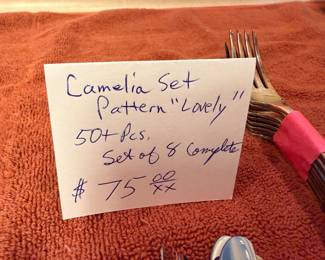 Camelia Set
Pattern "Lovely"
50+ Pcs.
Set of 8 Complete
$ 75 00/xx